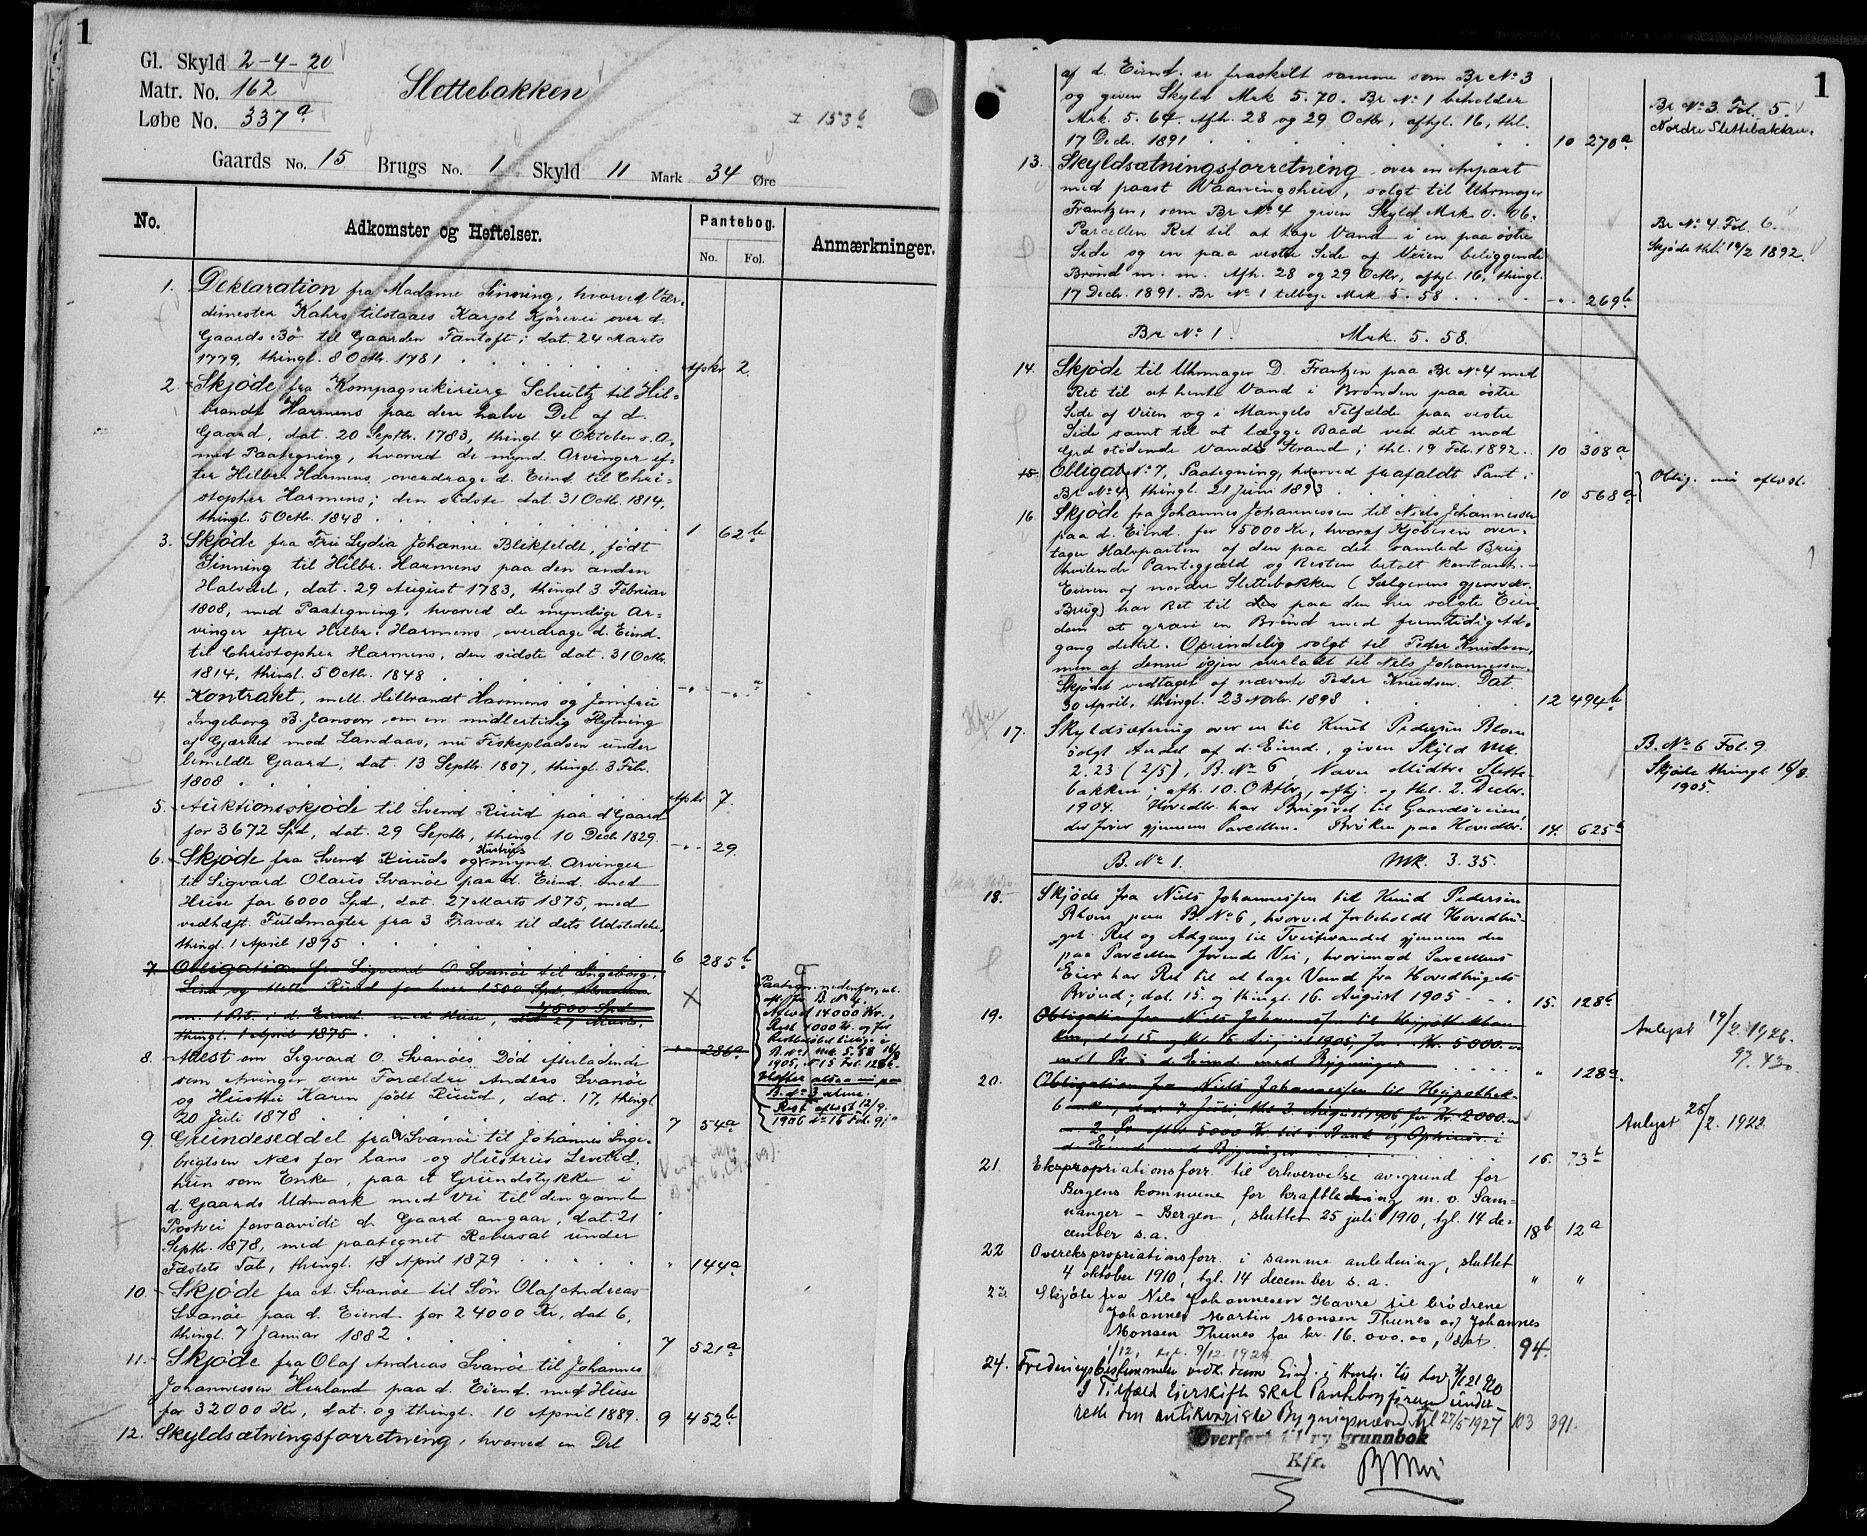 1
Gl. Skyld 2-4-20
Matr. No. 162
Løbe No. 337 a
Slettebakken
I 153 b
Gaards No. 15 Brugs No. 1 Skyld 11 Mark 34 Øre
No.
Adkomster og Heftelser.
Pantebog.
No. Fol.
Anmærkninger.
1. Deklaration fra Madame Sinning, hvorved Vær-
dimester Kahrs tilstaaes Karjol Kjørevei over d.
Gaards Bø til Gaarden Fantoft; dat. 24 Marts
1779, thingl. 8 Octbr. 1781 Afskr 2.
2. Skjøde fra Kompagnikirurg Schultz til Hil-
brandt Harmens paa den halve Del af d.
Gaard, dat. 20 Septbr. 1783, thingl 4 Oktober s. A.,
med Paategning, hvorved de mynd. Arvinger ef-
ter Hilbr. Harmens overdrage d. Eiend. til Chri-
stopher Harmens; den sidste dat. 31 Octbr. 1814,
thingl. 5 Octbr. 1848 1 62 b
3. Skjøde fra Fru Lydia Johanne Blikfeldt, født
Sinning til Hilbr. Harmens paa den anden
Halvdel, dat. 29 August 1783, thingl 3 Februar
1808, med Paategning, hvorved de myndige Ar-
vinger efter Hilbr. Harmens overdrage d. Eiend.
til Christopher Harmens, den sidste dat. 31 Octbr.
1814, thingl. 5 Octbr. 1848 -"- -"- a
4. Kontrakt, mell. Hilbrandt Harmens og Jomfru
Ingeborg B. Janson om en midlertidig Flytning
af Gjærdet mod Landaas, nu Fiskepladsen under
bemeldte Gaard, dat. 13 Septbr. 1807, thingl. 3 Febr.
1808 Afskr 7.
5. Auktionsskjøde til Svend Ruud paa d Gaard
for 3672 Spd, dat. 29 Septbr, thingl. 10 Decbr. 1829. -"- 29.
6. Skjøde fra Svend Ruuds og Hustrus mynd. Arvinger
til Sigvard Olaus Svanøe paa d. Eiend. med
Huse for 6000 Spd, dat. 27 Marts 1875, med
vedhæft. Fuldmagter fra 3 Fravær. til dets Udstedelse,
thingl. 1 April 1875 6 285 b
7. Obligation fra Sigvard O. Svanøe til Ingeborg,
Lina og Mette Ruud for hver 1500 Spd, tilsammen
4500 Spd
m. 1 Pr. i d. Eiend. med Huse, dat 27 Marts,
thingl. 1 April 1875. -"- 286 a
Paategn. nedenfor, ut.
Afbet 14000 Kr.,
Rest 4000 Kr. og for
Restbeløbet tillige i
B. No 1 Mk. 5.58 16/8
1905, No 15 Fol. 128 b
Hefter altsaa nu paa
B. No 3 alene.
Rest aflæst 12/9
1906 No 16 Fol. 91 a
8. Attest om Sigvard O. Svanøes Død efterladende
som Arvinger sine Forældre Anders Svanøe
og Hustru Karen født Ruud, dat. 17, thingl
20 Juli 1878 7 54 a
9. Grundeseddel fra A Svanøe til Johannes Inge-
brigtsen Næs for hans og Hustrus Levetid,
hun som Enke, paa et Grundstykke i
d. Gaards Udmark med Vei til den gamle
Postvei forsaavidt d. Gaard angaar, dat. 21
Septbr. 1878, med paategnet Reversal under
Fæstets Tab, thingl. 18 April 1879 " 144 a
10. Skjøde fra A. Svanøe til Søn Olaf Andreas
Svanøe paa d. Eiend for 24000 Kr, dat 6,
thingl. 7 Januar 1882 7 521 a
11. Skjøde fra Olaf Andreas Svanøe til Johannes
Johannessen Herland paa d. Eiend. med Huse
for 32000 Kr, dat. og thingl. 10 April 1889. 9 452 b
12. Skyldsætningsforretning, hvorved en Del
1
af d. Eiend. er fraskilt samme som Br No 3
og given Skyld Mrk 5.70. Br No 1 beholder
Mrk. 5.64. Afh. 28 og 29 Octbr, afhgl. 16, thl.
17 Decbr. 1891 10 270 a
Br No 3. Fol. 5.
Nordre Slettebakken.
13. Skyldsætningsforretning over en Anpart
med paast Vaaningshus, solgt til Uhrmager
Frantzen, som Br No 4 given Skyld Mrk 0.06.
Parcellen Ret til at tage Vand i en paa østre
Side og en paa vestre Side af Veien beliggende
Brønd m. m. Afh. 28 og 29 Octbr, afhgl. 16, thingl.
17 Decbr. 1891. Br No 1 tilbage Mrk 5.58 -"- 269 b
Br No 4 Fol. 6.
Skjøde thl. 19/2 1892.
Br No 1. Mrk. 5.58.
14. Skjøde til Uhrmager D. Frantzen paa Br No 4 med
Ret til at hente Vand i Brønden paa østre
Side af Veien og i Mangels Tilfælde paa vestre
Side samt til at lægge Baad ved det mod
Grd stødende Vands Strand; thl. 19 Febr 1892. 10 308 a
15. Obligat. No 7, Paategning, hvorved frafaldt Pant i
Br No 4, thingl. 21 Juni 1893 10 568 a
Oblig. nu aflæst.
16. Skjøde fra Johannes Johannessen til Niels Johannessen
paa d. Eiend. for 15000 Kr, hvoraf Kjøberen over-
tager Halvparten af den paa det samlede Brug
hvilende Pantegjæld og Resten betalt kontant.-
Eieren af nordre Slettebakken (Sælgerens gjenvær.
Brug) har Ret til paa den her solgte Eien-
dom at grave en Brønd med fremtidig Ad-
gang dertil. Oprindelig solgt til Peder Knudsen,
men af denne igjen overladt til Niels Johannessen.
Skjødet vedtaget af nævnte Peder Knudsen. Dat.
30 April, thingl. 23 Novbr. 1898 12 494 b
17. Skyldsætning over en til Knut Pedersen Blom
solgt Andel af d. Eiend., given Skyld Mk.
2.23 (2/5), B. No 6, Navn Midtre Slette-
bakken; afh. 10. Oktbr, afhj. og thl. 2. Decbr.
1904. Hovedbr. har Brugsret til Gaardsveien,
der fører gjennem Parcellen. Brøken paa Hovedbr. 14. 625 b
B. No 6 Fol. 9
Skjøde thingl 16/8.
1905.
B. No 1. Mk. 3.35.
18. Skjøde fra Niels Johannessen til Knud Pedersen
Blom paa B. No 6, hvorved forbeholdt Hovedbru-
get Ret og Adgang til Tveitevandet gjennem den
paa Parcellen førende Vei, hvorimod Parcellens
Eier har Ret til at tage Vand fra Hovedbrugets
Brønd; dat. 15. og thingl. 16. August 1905 15. 128 b
19. Obligation fra Niels Johannessen til Hypothekban-
ken, dat 15 og thl 16 August 1905, for Kr. 5000.
m 1 Pr. i d. Eiend med Bygninger " 128 a.
Avlyst 19/2 1926.
97. 430.
20. Obligation fra Niels Johannessen til Hypothek-
b, dat. 7 Juli, thl 3 August 1906, for Kr. 2000.
m. 2. Pr. efter 5000 Kr. til s. Bank og Opfriskn. i
d. Eiend med Bygninger 16. 73 b
Avlyst 25/2. 1922
21. Ekspropriationsforr. til erhvervelse av grund for
Bergens kommune for kraftledning m. v. Sam-
nanger - Bergen, sluttet 25 juli 1910, tgl. 14 de-
cember s. a. 18 b 12 a
22 Overekspropriationsforr. i samme anledning, sluttet
4 oktober 1910, tgl. 14 december s. a. " "
23 Skjøte fra Nils Johannesen Havre til brødrene
Johannes Martin Monsen Thunes og Johannes
Monsen Thunes for kr. 16.000.00, dat.
1/12, tgl. 9/12. 1924 94.
24. Fredningsbestemmelse vedk. denne Eiend. i Henh. til lov 3/12 1920
I Tilfæld Eierskifte skal Pantebogføreren under-
rette den antikvariske Bygningsnævnd. tgl 27/5 1927 103 391.
Overført til ny grunnbok
Kfr.